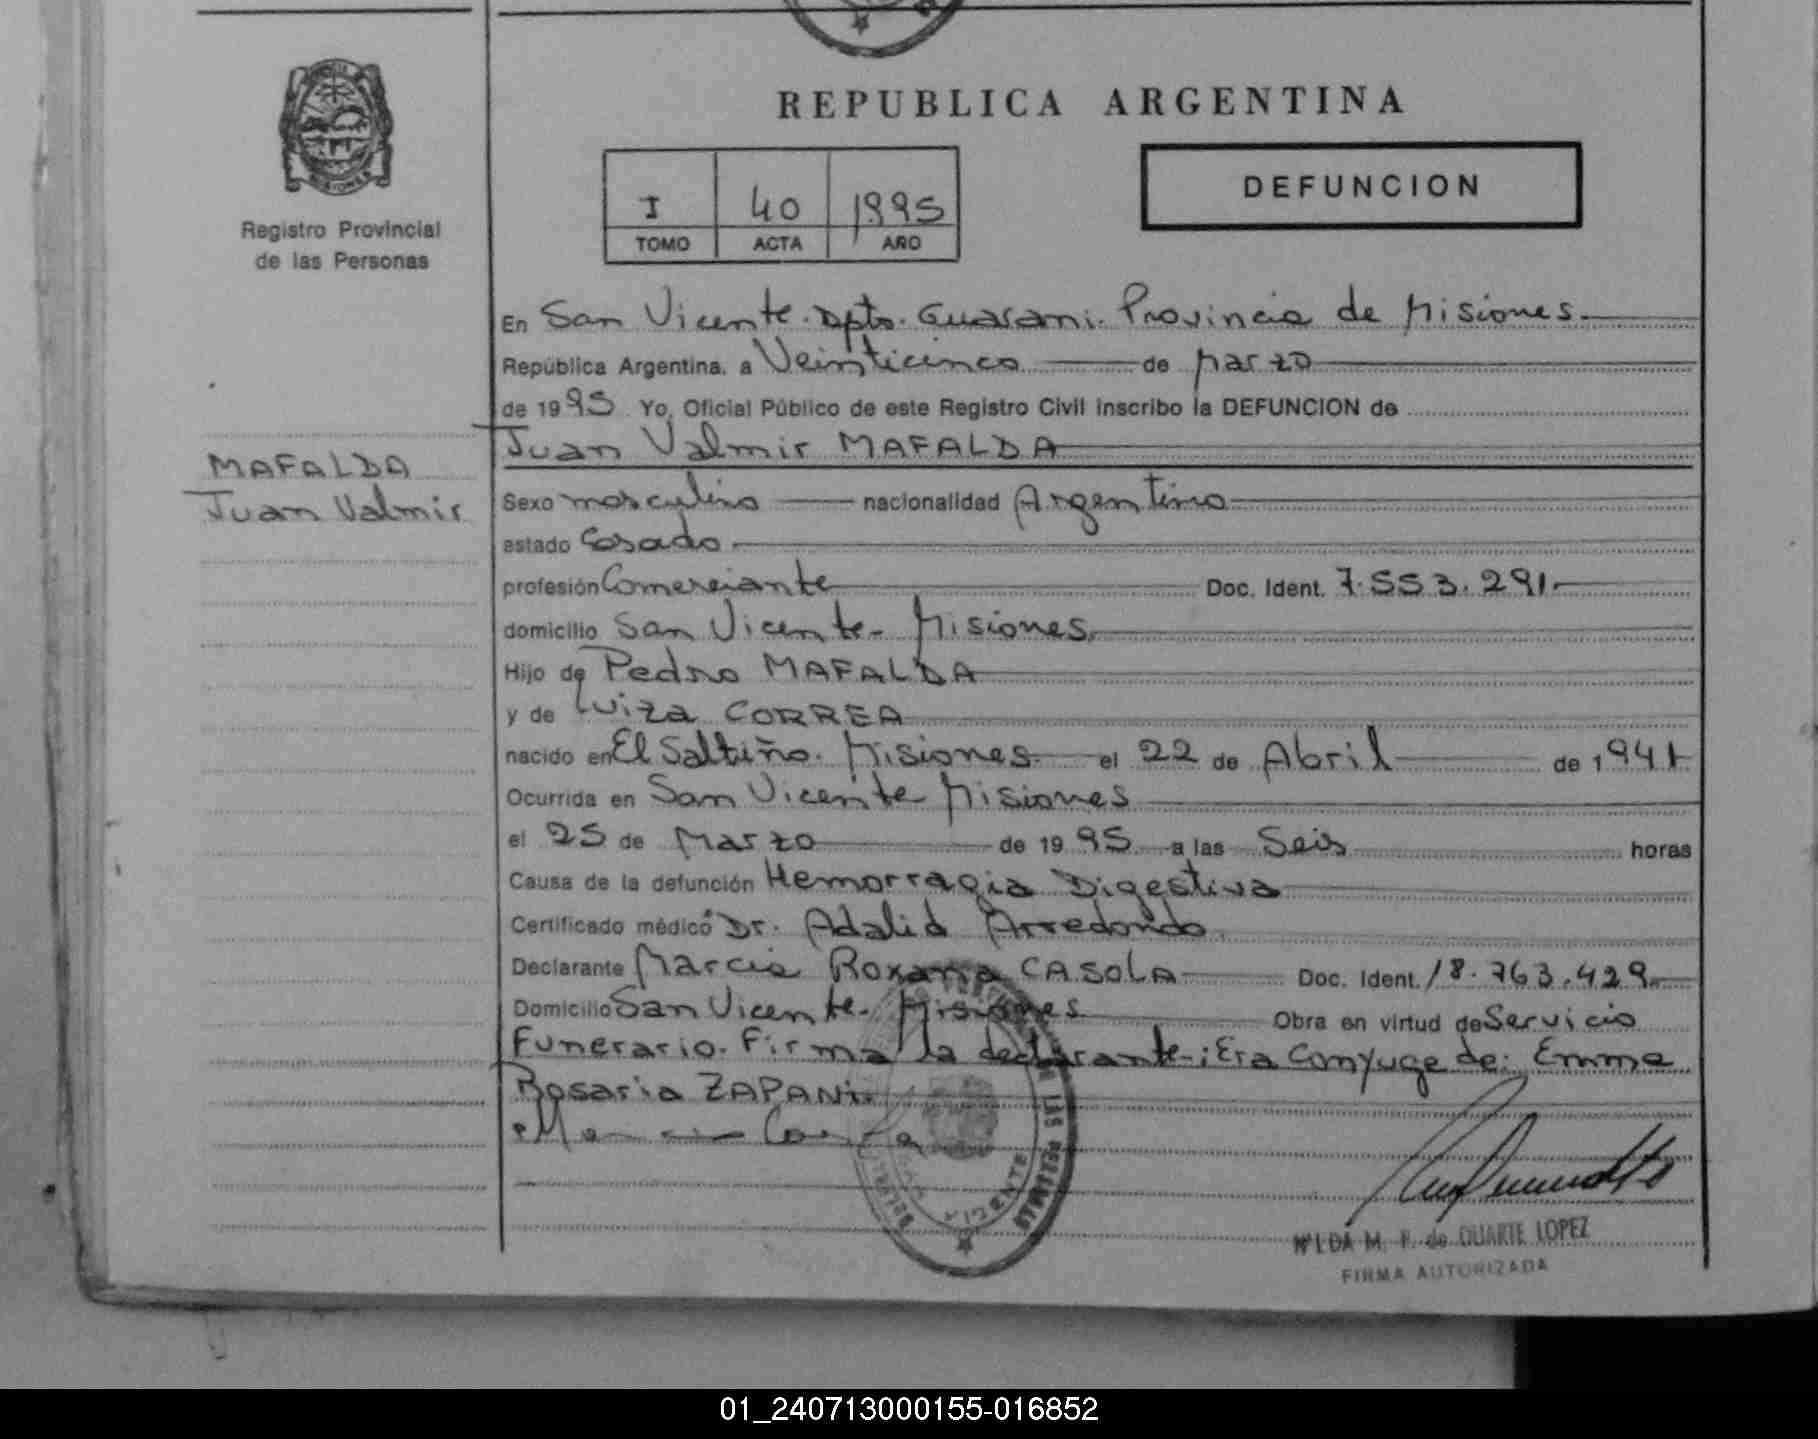 REPUBLICA ARGENTINA
DEFUNCION
I 40 1995
TOMO ACTA AÑO
Registro Provincial
de las Personas
MAFALDA
Juan Valmir
En San Vicente. Dpto. Guarani. Provincia de Misiones.
República Argentina, a Veinticinco de Marzo
de 1995 Yo, Oficial Público de este Registro Civil inscribo la DEFUNCION de
Juan Valmir MAFALDA
Sexo masculino nacionalidad Argentino
estado Casado
profesión Comerciante Doc. Ident. 7.553.291.
domicilio San Vicente - Misiones.
Hijo de Pedro MAFALDA
y de Luiza CORREA
nacido en El Saltiño. Misiones. el 22 de Abril de 1941
Ocurrida en San Vicente Misiones
el 25 de Marzo de 1995 a las Seis horas
Causa de la defunción Hemorragia Digestiva
Certificado médico Dr. Adalid Arredondo
Declarante Marcia Roxana CASOLA Doc. Ident. 18.763.429.
Domicilio San Vicente. Misiones Obra en virtud de Servicio
Funerario. Firma la declarante.; Era Conyuge de: Emma
Rosaria ZAPANI.
LAS PERSONAS
VICENTE
M. F. de DUARTE LOPEZ
FIRMA AUTORIZADA
01_240713000155-016852